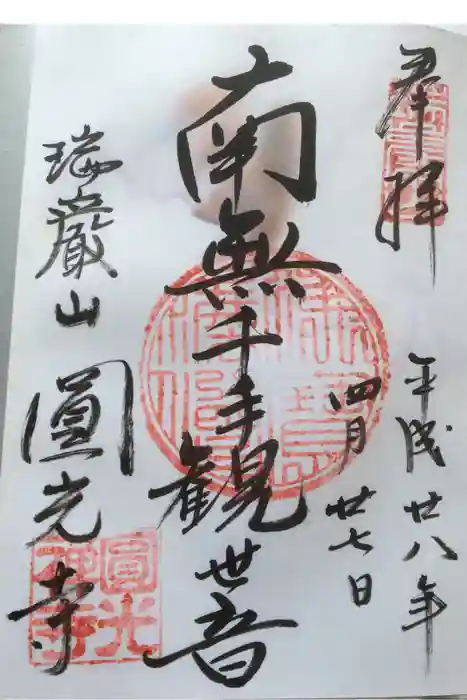 奉拝
平成廿八年
四月廿七日
南無千手観世音
瑞巌山
圓光寺
圓光
禅寺